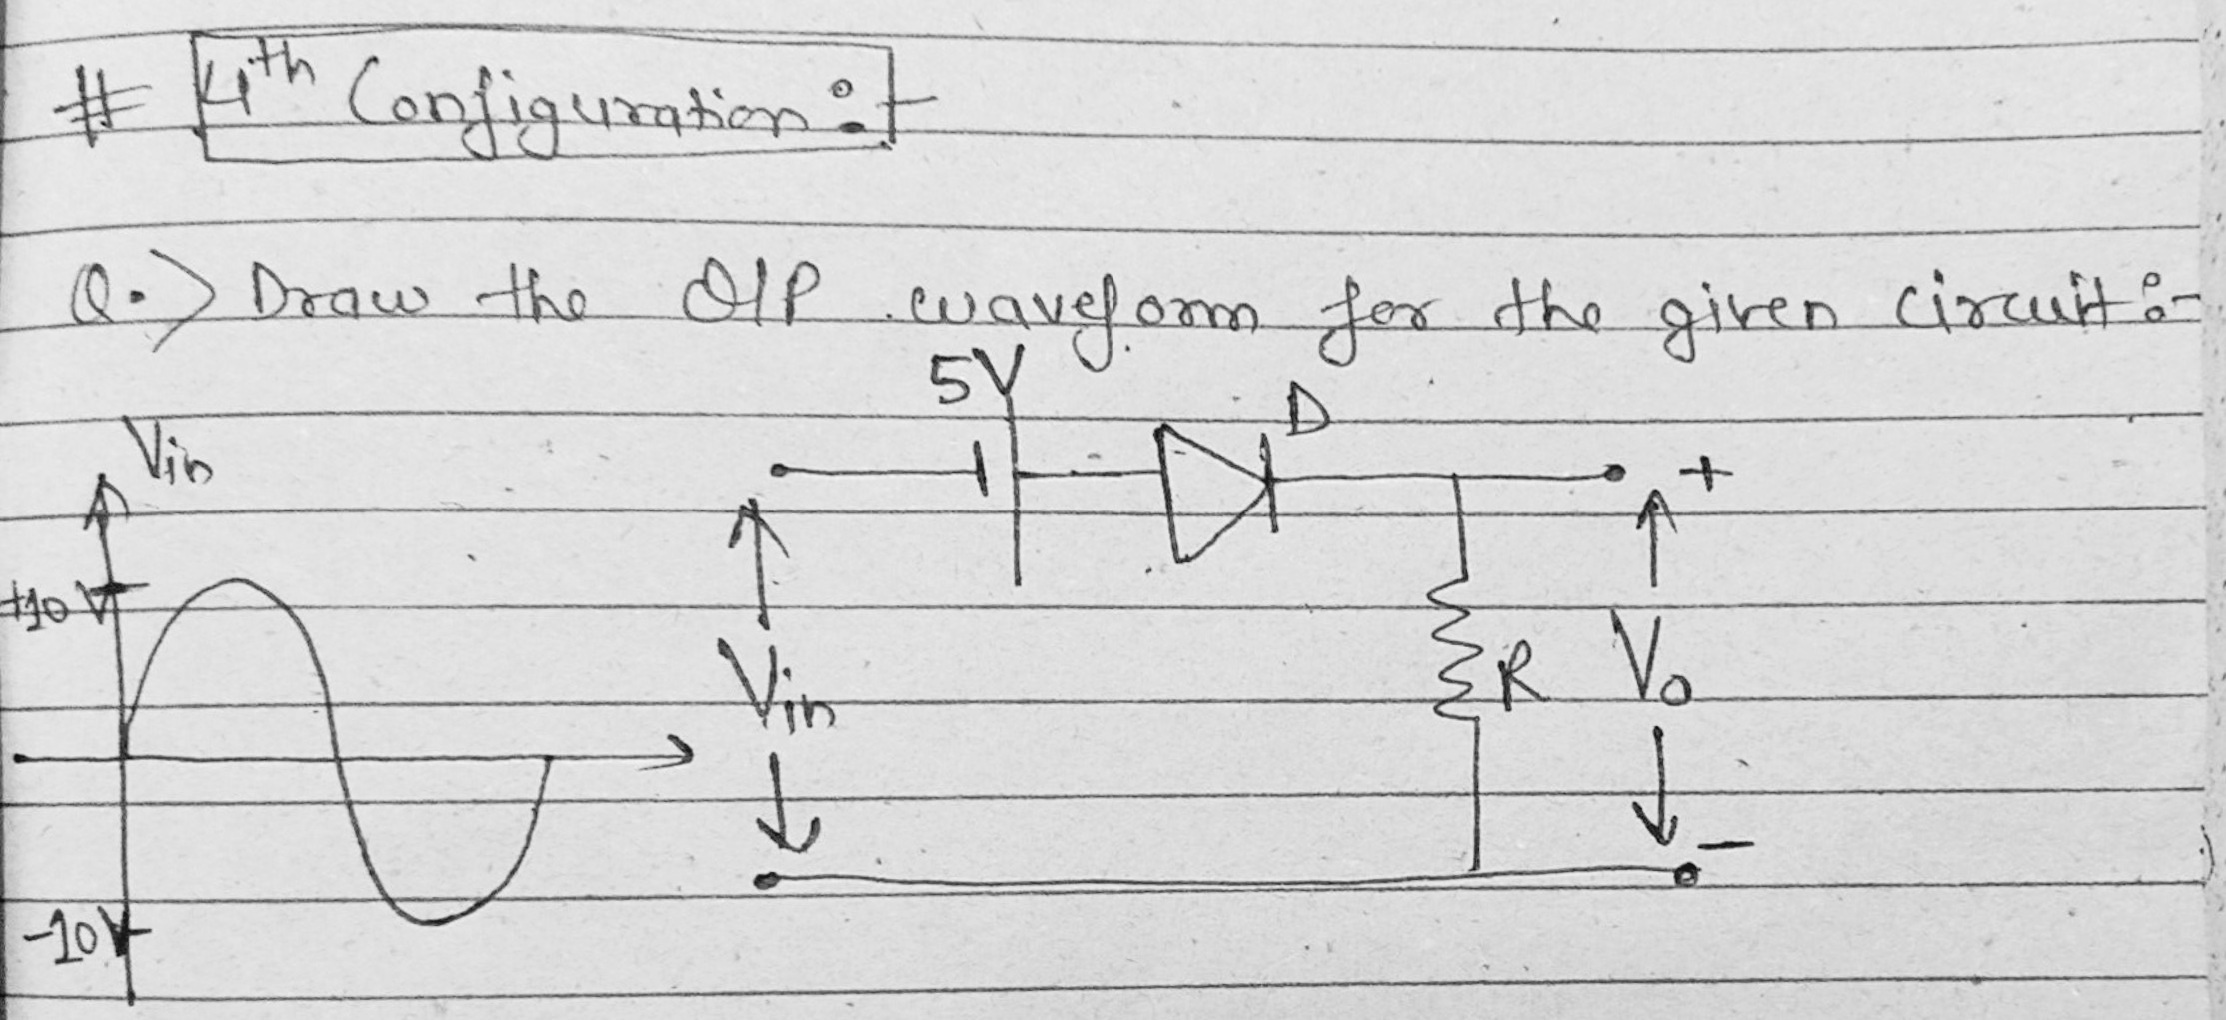 # 4th Configuration :-
Q.> Draw the O/P waveform for the given circuit :-
5V
D
Vin
+
+10V
Vin
R
Vo
-
-10V